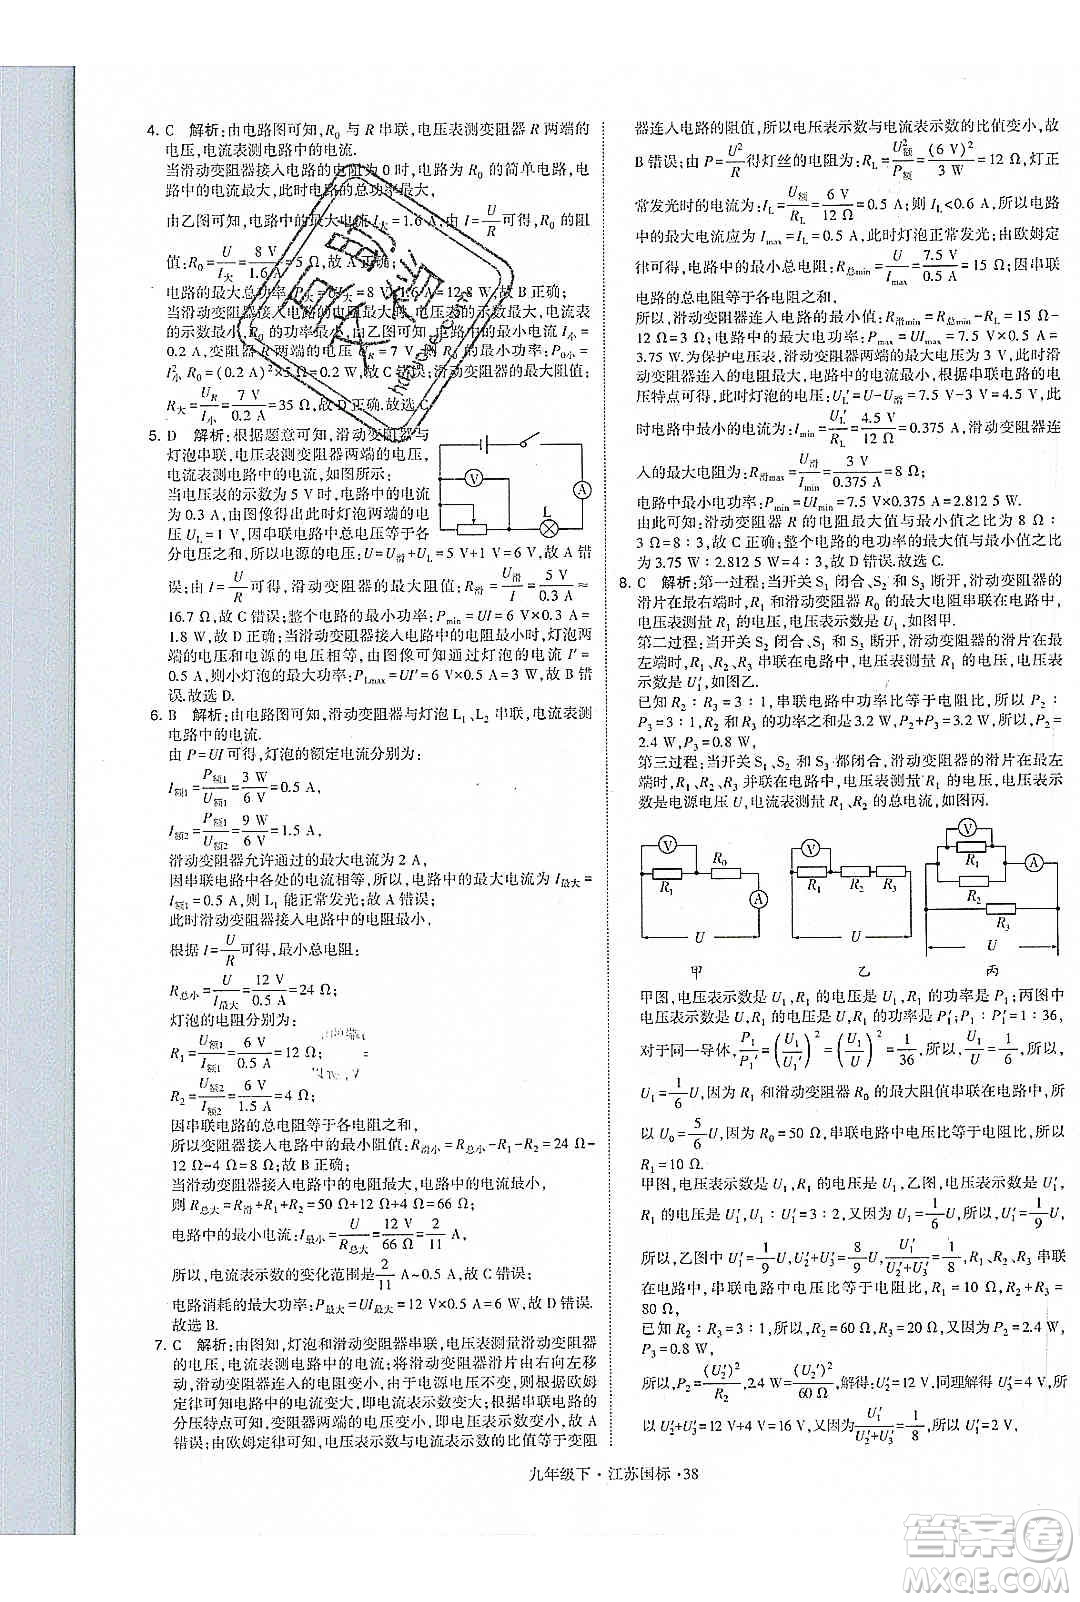 4. C 解析:由电路图可知,R₀ 与 R 串联,电压表测变阻器 R 两端的
电压,电流表测电路中的电流.
当滑动变阻器接入电路的电阻为 0 时,电路为 R₀ 的简单电路,电
路中的电流最大,此时电路的总功率最大,
由乙图可知,电路中的最大电流 I大=1.6 A,由 I=U/R 可得,R₀ 的阻
值:R₀=U/I大=8 V/1.6 A=5 Ω,故 A 正确;
电路的最大总功率 P大=UI大=8 V×1.6 A=12.8 W,故 B 正确;
当滑动变阻器接入电路的电阻最大时,电压表的示数最大,电流表
的示数最小,R₀ 的功率最小,由乙图可知,电路中的最小电流 I小=
0.2 A,变阻器 R 两端的电压 U_R=7 V,则 P₀小=
I²小R₀=(0.2 A)²×5 Ω=0.2 W,故 C 错误;滑动变阻器的最大阻值:
R大=U_R/I小=7 V/0.2 A=35 Ω,故 D 正确.故选 C.
5. D 解析:根据题意可知,滑动变阻器与
灯泡串联,电压表测变阻器两端的电压,
电流表测电路中的电流,如图所示:
当电压表的示数为 5 V 时,电路中的电流
为 0.3 A,由图像得出此时灯泡两端的电
压 U_L=1 V,因串联电路中总电压等于各
分电压之和,所以电源的电压:U=U滑+U_L=5 V+1 V=6 V,故 A 错
误;由 I=U/R 可得,滑动变阻器的最大阻值:R滑=U滑/I=5 V/0.3 A≈
16.7 Ω,故 C 错误;整个电路的最小功率:Pmin=UI=6 V×0.3 A=
1.8 W,故 B 错误;当滑动变阻器接入电路中的电阻最小时,灯泡两
端的电压和电源的电压相等,由图像可知通过灯泡的电流 I′=
0.5 A,则小灯泡的最大功率:PLmax=UI′=6 V×0.5 A=3 W,故 D 正
确.故选 D.
6. B 解析:由电路图可知,滑动变阻器与灯泡 L₁、L₂ 串联,电流表测
电路中的电流.
由 P=UI 可得,灯泡的额定电流分别为:
I额1=P额1/U额1=3 W/6 V=0.5 A,
I额2=P额2/U额2=9 W/6 V=1.5 A,
滑动变阻器允许通过的最大电流为 2 A,
因串联电路中各处的电流相等,电路中的最大电流为 I最大=
I额1=0.5 A,所以,L₁ 能正常发光;故 A 错误;
此时滑动变阻器接入电路中的电阻最小,
根据 I=U/R 可得,最小总电阻:
R总小=U/I最大=12 V/0.5 A=24 Ω;
灯泡的电阻分别为:
R₁=U额1/I额1=6 V/0.5 A=12 Ω;
R₂=U额2/I额2=6 V/1.5 A=4 Ω;
因串联电路的总电阻等于各电阻之和,
所以变阻器接入电路中的最小阻值:R滑小=R总小-R₁-R₂=24 Ω-
12 Ω-4 Ω=8 Ω;故 B 正确;
当滑动变阻器接入电路中的电阻最大时,电路中的电流最小,
则 R总大=R滑+R₁+R₂=50 Ω+12 Ω+4 Ω=66 Ω,
电路中的最小电流:I最小=U/R总大=12 V/66 Ω=2/11 A,
所以,电流表示数的变化范围是 2/11 A~0.5 A,故 C 错误;
电路消耗的最大功率:P最大=UI最大=12 V×0.5 A=6 W,故 D 错误.
故选 B.
7. C 解析:由图知,灯泡和滑动变阻器串联,电压表测量滑动变阻器
的电压,电流表测电路中的电流;将滑动变阻器滑片由右向左移
动,变阻器连入的电阻变小,由于电源电压不变,因此根据欧姆
定律可知电路中的电流变大,即电流表示数变大;根据串联电路的
分压特点可知,变阻器两端的电压变小,即电压表示数变小,故 A
错误;由欧姆定律可知,电压表示数与电流表示数的比值等于变阻
器连入电路的阻值,所以电压表示数与电流表示数的比值变小,故
B 错误;由 P=U²/R 得灯丝的电阻为:R_L=U²额/P额=(6 V)²/3 W=12 Ω,灯正
常发光时的电流为:I_L=U额/R_L=6 V/12 Ω=0.5 A;则 I_L<0.6 A,所以电路
中的最大电流应为 Imax=I_L=0.5 A,此时灯泡正常发光;由欧姆定
律可得,电路中的最小总电阻:R总min=U/Imax=7.5 V/0.5 A=15 Ω;因串联
电路的总电阻等于各电阻之和,
所以,滑动变阻器连入电路的最小值:R滑min=R总min-R_L=15 Ω-
12 Ω=3 Ω;电路中的最大电功率:Pmax=UImax=7.5 V×0.5 A=
3.75 W.为保护电压表,滑动变阻器两端的最大电压为 3 V,此时滑
动变阻器连入的电阻最大,电路中的电流最小,根据串联电路的电
压特点可得,此时灯泡的电压:U_L′=U-U滑=7.5 V-3 V=4.5 V,此
时电路中最小的电流:Imin=U_L′/R_L=4.5 V/12 Ω=0.375 A,滑动变阻器连
入的最大电阻为:R滑max=U滑/Imin=3 V/0.375 A=8 Ω;
电路中最小电功率:Pmin=UImin=7.5 V×0.375 A=2.812 5 W.
由此可知:滑动变阻器 R 的电阻最大值与最小值之比为 8 Ω:
3 Ω=8:3,故 C 正确;整个电路的电功率最大值与最小值之比
为 3.75 W:2.812 5 W=4:3,故 D 错误.故选 C.
8. C 解析:第一过程;当开关 S₁ 闭合、S₂ 和 S₃ 断开,滑动变阻器的
滑片在最右端时,R₁ 和滑动变阻器 R₀ 的最大电阻串联在电路中,
电压表测量 R₁ 的电压,电压表示数是 U₁,如图甲.
第二过程;当开关 S₂ 闭合、S₁ 和 S₃ 断开,滑动变阻器的滑片在最
左端时,R₁、R₂、R₃ 串联在电路中,电压表测量 R₁ 的电压,电压表
示数是 U₁′,如图乙.
已知 R₂:R₃=3:1,串联电路中功率比等于电阻比,所以 P₂:
P₃=3:1,又因为 R₂、R₃ 的功率之和是 3.2 W,P₂+P₃=3.2 W,所以 P₂=
2.4 W,P₃=0.8 W.
第三过程;当开关 S₁、S₂ 和 S₃ 都闭合,滑动变阻器的滑片在最左
端时,R₂ 短路,R₁、R₃ 并联在电路中,电压表测量电源电压,电压表示
数是电源电压 U,电流表测量 R₁、R₃ 的总电流,如图丙.
甲图,电压表示数是 U₁,R₁ 的电压是 U₁,R₁ 的功率是 P₁;丙图中
电压表示数是 U,R₁ 的电压是 U,R₁ 的功率是 P₁′;P₁:P₁′=1:36,
对于同一导体,P₁/P₁′=(U₁/U₁′)²=(U₁/U)²=1/36,所以,U₁/U=1/6,所以,
U₁=1/6U,因为 R₁ 和滑动变阻器 R₀ 的最大阻值串联在电路中,所
以 U₀=5/6U,又因为 R₀=50 Ω,串联电路中电压比等于电阻比,所以
R₁=10 Ω.
甲图,电压表示数是 U₁,R₁ 的电压是 U₁,乙图,电压表示数是 U₁′,
R₁ 的电压是 U₁′,U₁:U₁′=3:2,又因为 U₁=1/6U,所以 U₁′=1/9U,
所以,乙图中 U₁′=1/9U,U₂′+U₃′=8/9U,U₁′/(U₂′+U₃′)=1/8,R₁、R₂、R₃ 串联
在电路中,串联电路中电压比等于电阻比,因为 R₁=10 Ω,R₂+R₃=
80 Ω,
已知 R₂:R₃=3:1,所以,R₂=60 Ω,R₃=20 Ω,又因为 P₂=2.4 W,
P₃=0.8 W,
所以,P₂=(U₂′)²/R₂,2.4 W=(U₂′)²/60 Ω,解得:U₂′=12 V,同理解得 U₃′=4 V,
所以 U₂′+U₃′=12 V+4 V=16 V,又因为 U₁′/(U₂′+U₃′)=1/8,所以 U₁′=2 V.
V
A
L
V
R₁
R₀
A
U
甲
V
R₁ R₂ R₃
U
乙
V
R₁
A
R₂
R₃
U
丙
九年级下·江苏国标·38
答案卷
MXQE.COM